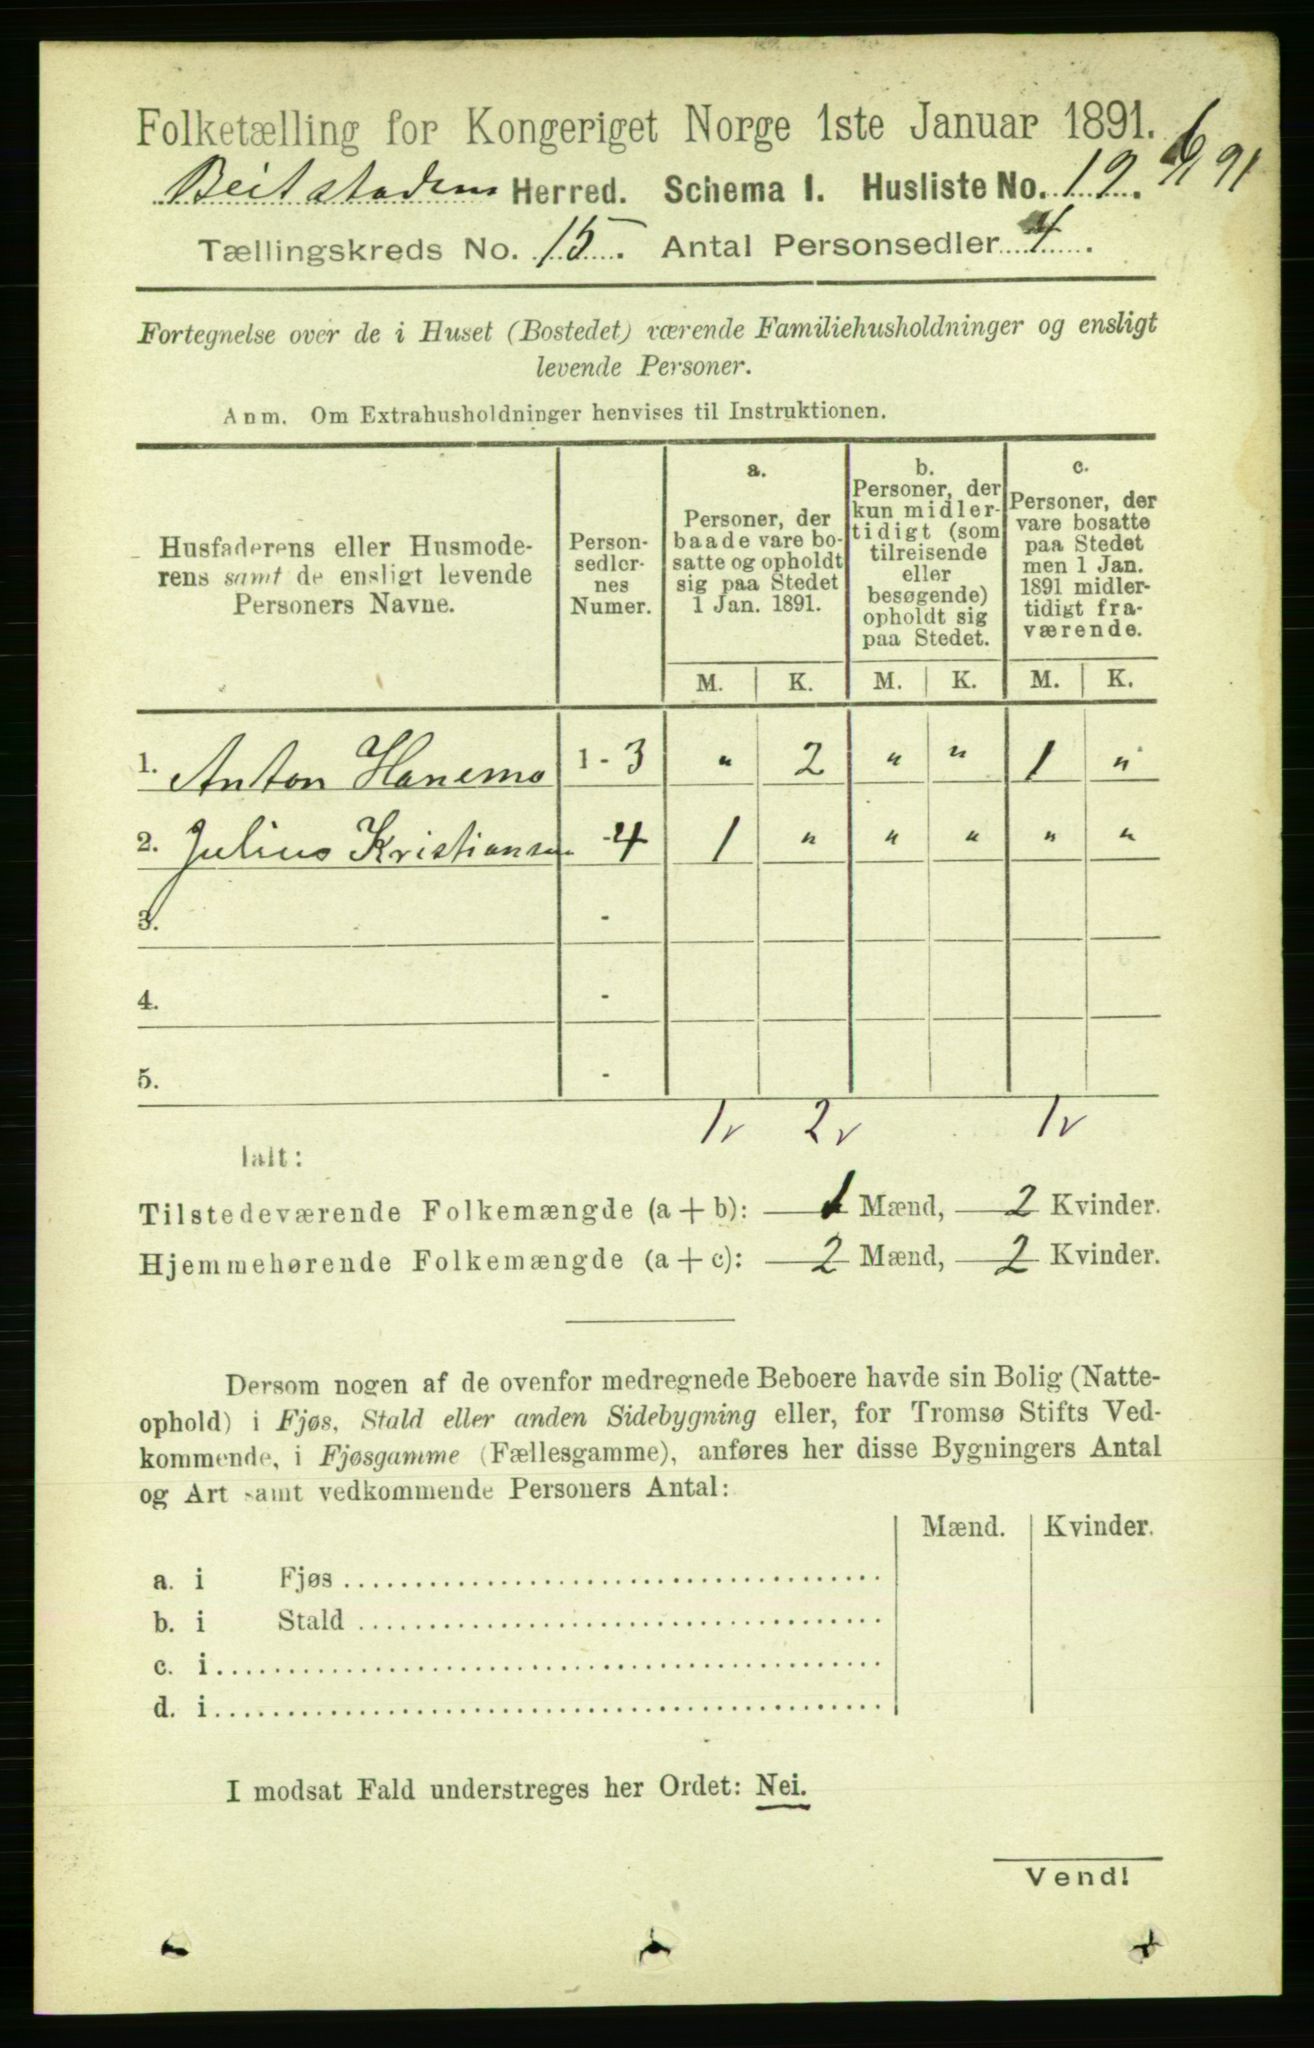 Folketælling for Kongeriget Norge 1ste Januar 1891.
Beitstaden Herred. Schema 1. Husliste No. 19.
Tællingskreds No. 15. Antal Personsedler 4.
Fortegnelse over de i Huset (Bostedet) værende Familiehusholdninger og ensligt
levende Personer.
Anm. Om Extrahusholdninger henvises til Instruktionen.
Husfaderens eller Husmode-
rens samt de ensligt levende
Personers Navne.
Person-
sedler-
nes
Numer.
a.
Personer, der
baade vare bo-
satte og opholdt
sig paa Stedet
1 Jan. 1891.
b.
Personer, der
kun midler-
tidigt (som
tilreisende
eller
besøgende)
opholdt sig
paa Stedet.
c.
Personer, der
vare bosatte
paa Stedet
men 1 Jan.
1891 midler-
tidigt fra-
værende.
M. K. M. K. M. K.
1. Anton Hanemo 1 - 3 " 2 " " 1 "
2. Julius Kristiansen - 4 1 " " " " "
3. -
4. -
5. -
1 v 2 v 1 v
Ialt:
Tilstedeværende Folkemængde (a + b): 1 Mænd, 2 Kvinder.
Hjemmehørende Folkemængde (a + c): 2 Mænd, 2 Kvinder.
Dersom nogen af de ovenfor medregnede Beboere havde sin Bolig (Natte-
ophold) i Fjøs, Stald eller anden Sidebygning eller, for Tromsø Stifts Ved-
kommende, i Fjøsgamme (Fællesgamme), anføres her disse Bygningers Antal
og Art samt vedkommende Personers Antal:
Mænd. Kvinder.
a. i Fjøs
b. i Stald
c. i
d. i
I modsat Fald understreges her Ordet: Nei.
Vend!